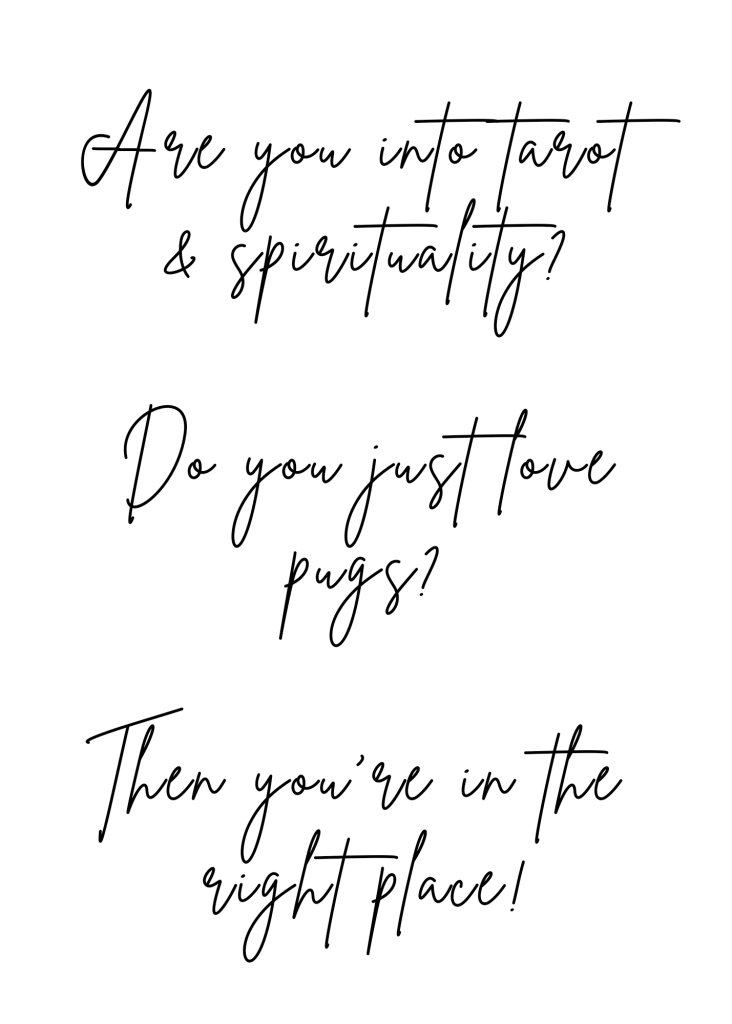 Are you into tarot
& spirituality?
Do you just love
pugs?
Then you're in the
right place!